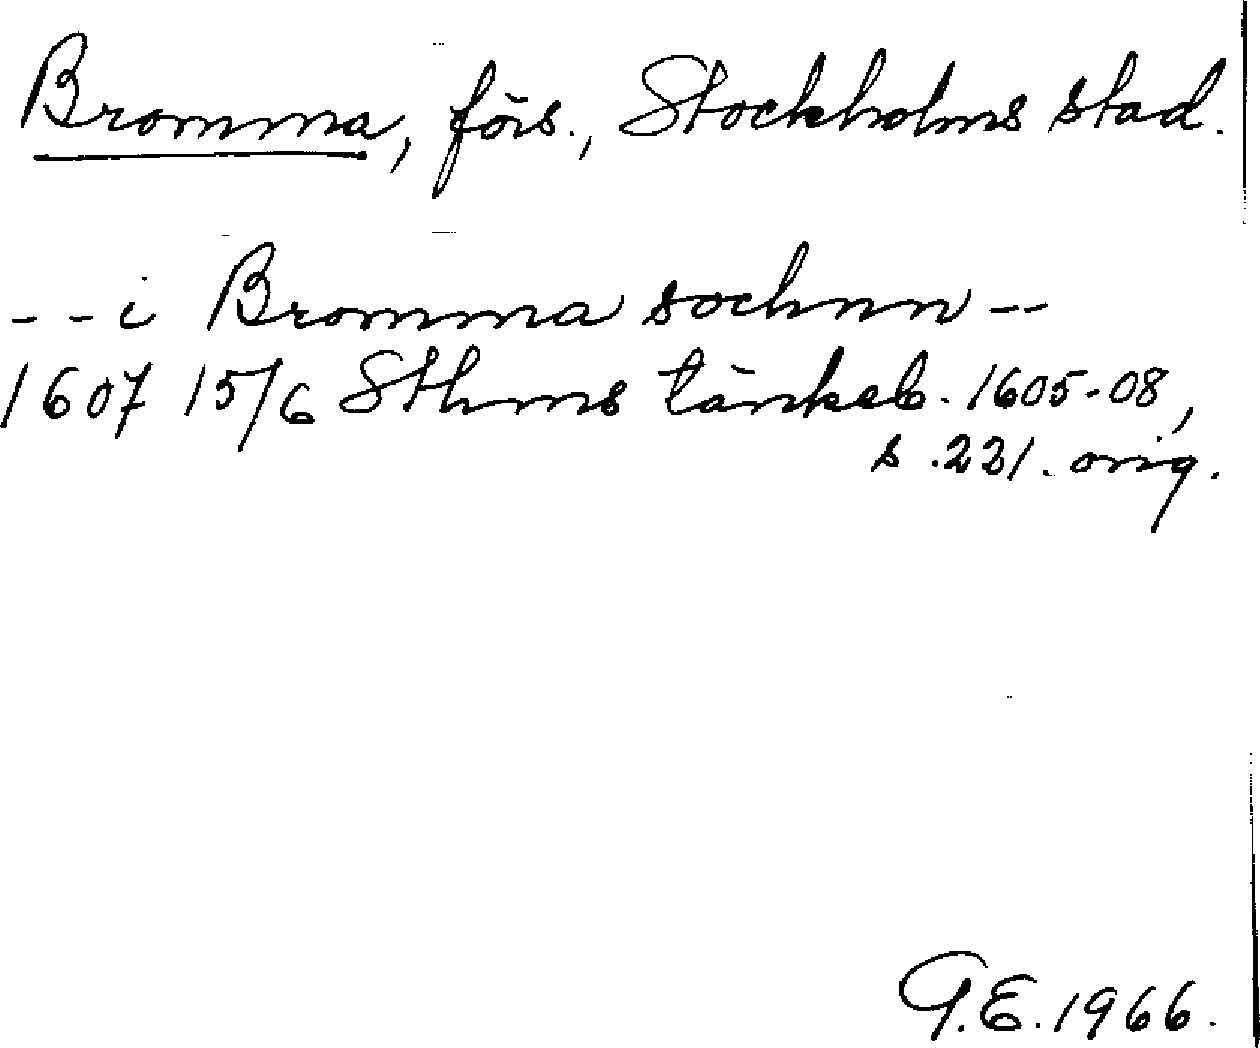 Bromma, förs., Stockholms stad.
-- i Bromma sochnn --
1607 15/6 Sthms tänkeb. 1605-08,
s. 221. orig.
G.E. 1966.